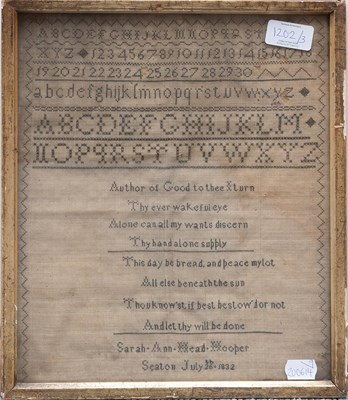 1202/3
ABCDEFGHIJKLMNOPQRSTUVW
XYZ 1 2 3 4 5 6 7 8 9 10 11 12 13 14 15 16 17
19 20 21 22 23 24 25 26 27 28 29 30
abcdefghijklmnopqrstuvwxyz
ABCDEFGHIJKLM
NOPQRSTUVWXYZ
Author of Good to thee I turn
Thy ever wakeful eye
Alone can all my wants discern
Thy hand alone supply
This day be bread, and peace my lot
All else beneath the sun
Thou know'st, if best bestow'd or not
And let thy will be done
Sarah-Ann-Head-Hooper
Seaton July 1832